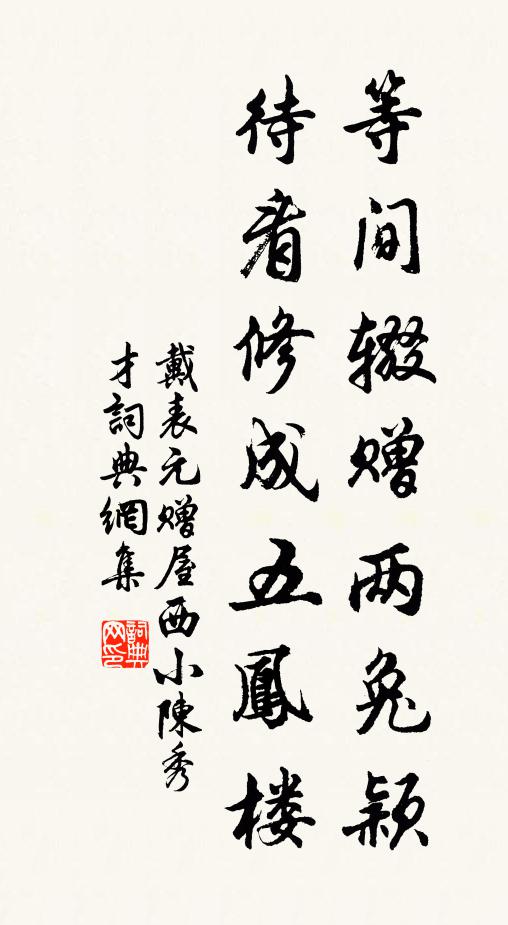 等间辍赠两兔颖
待看修成五鳳楼
戴表元赠屋西小陳秀
才詞典網集
詞典网印